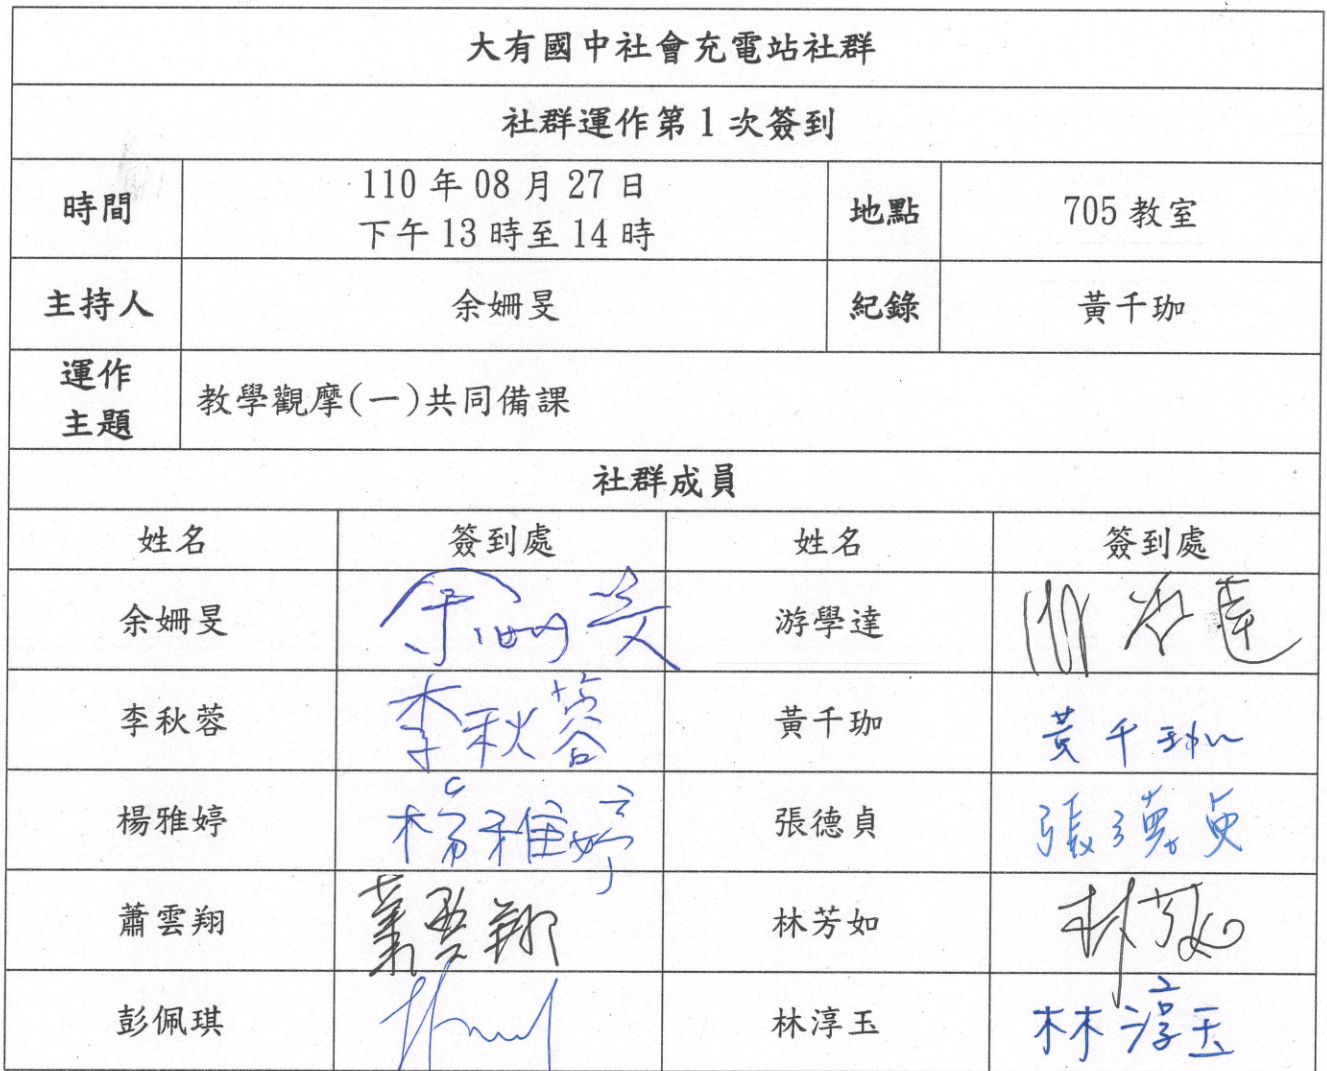 大有國中社會充電站社群
社群運作第1次簽到
時間 110年08月27日 地點 705教室
下午13時至14時
主持人 余姍旻 紀錄 黃千珈
運作 教學觀摩(一)共同備課
主題
社群成員
姓名 簽到處 姓名 簽到處
余姍旻 余姍旻 游學達 游学達
李秋蓉 李秋蓉 黃千珈 黃千珈
楊雅婷 楊雅婷 張德貞 張德貞
蕭雲翔 蕭雲翔 林芳如 林芳如
彭佩琪 林淳玉 林淳玉